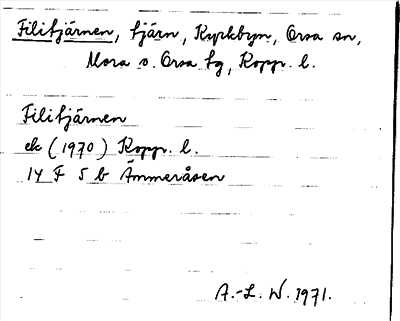 Filitjärnen, tjärn, Kyrkbyn, Orsa sn,
Mora o. Orsa tg, Kopp. l.
Filitjärnen
ek (1970) Kopp. l.
14 F 5 b Ämmeråsen
A.-L. W. 1971.